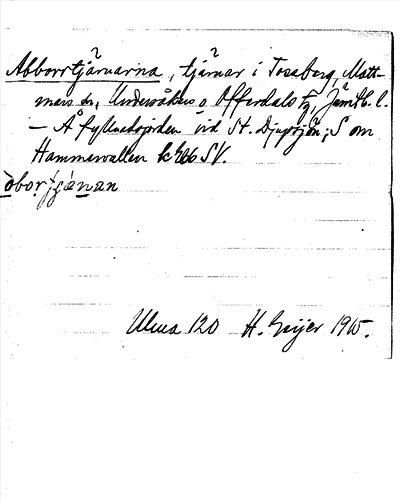 Abborrtjärnarna, tjärnar i Tossberg, Matt-
mars sn, Undersåkers o Offerdals tg, Jämtl. l.
— Å fyllnadsjorden vid St. Djuptjän; S om
Hammarvallen k 466 SV.
òborṭjǽnan
Ulma 120 H. Geijer 1915.